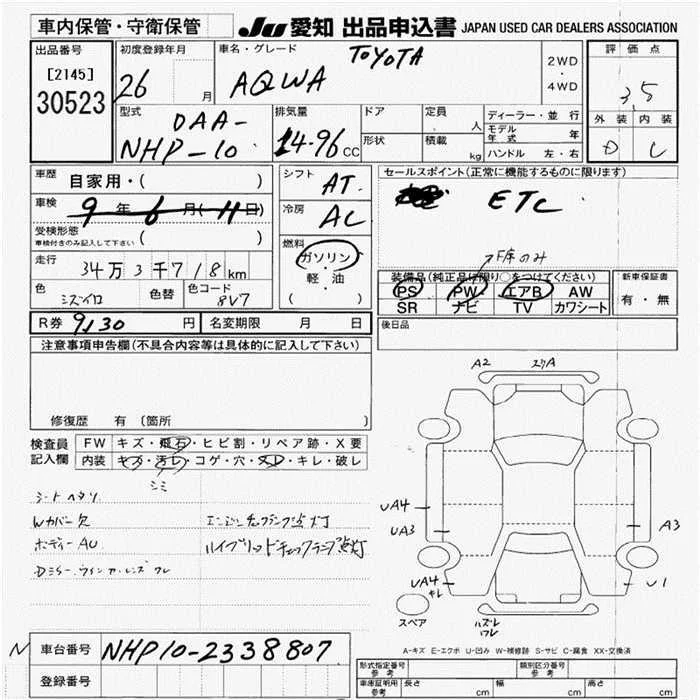 車内保管・守衛保管 JU 愛知 出品申込書 JAPAN USED CAR DEALERS ASSOCIATION
出品番号 初度登録年月 車名・グレード TOYOTA 評価点
[2145] 26 月 AQWA 2WD ・ 4WD 3,5
30523 外装 内装
型式 DAA- 排気量 ドア 定員 人 ディーラー・並行 D C
NHP-10 14-96 CC 形状 積載 kg モデル年式 年
ハンドル 左・右
車歴 自家用・( ) シフト AT セールスポイント(正常に機能するものに限ります)
車検 9年6月(11日) 冷房 AC ETC
受検形態 ( )
車検付きのみ記入して下さい 燃料 ガソリン F席のみ
走行 34万3千718km 軽・油 装備品(純正品に限り○をつけてください) 新車保証書
色 ミズイロ 色替 色コード 8V7 ( ) PS PW エアB AW 有・無
SR ナビ TV カワシート
R券 9,130 円 名変期限 月 日 後日品
注意事項申告欄(不具合内容等は具体的に記入して下さい)
修復歴 有 (箇所 )
検査員 FW キズ・飛石・ヒビ割・リペア跡・X要
記入欄 内装 キズ・汚レ・コゲ・穴・スレ・キレ・破レ
シミ
シートヘタリ
Wカバー欠 エンジンチェックランプ点灯
ボディーAU ハイブリッドチェックランプ点灯
Dミラーウインカーレンズワレ
A2 スリA
UA4
UA3 A3
UA4 キレ U1
スペア ハズレ ワレ
A-キズ E-エクボ U-凹み W-補修跡 S-サビ C-腐食 XX-交換済
N 車台番号 NHP10-2338807
登録番号
形式指定番号 参考 類別区分番号 参考
車庫証明用 参考 長さ cm 幅 cm 高さ cm